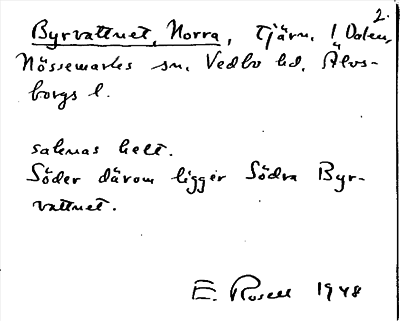 2.
Byrvattnet, Norra, Tjärn, I Dalen,
Nössemarks sn, Vedbo hd, Älvs-
borgs l.
saknas helt.
Söder därom ligger Södra Byr-
vattnet.
E. Rosell 1948